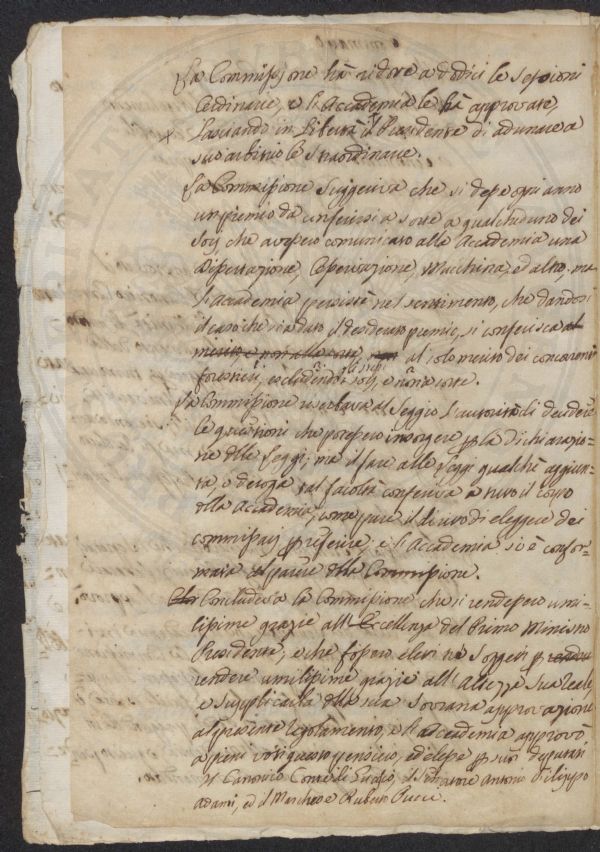 La Commissione hà ridotte a dodici le sessioni
Ordinarie, e l'Accademia le hà approvate,
lasciando in libertà il Presidente di adunare a
suo arbitrio le straordinarie.
La Commissione suggeriva che si desse ogni anno
un premio da conferirsi a sorte a qualcheduno dei
Socj che avessero comunicato alla Accademia una
Dissertazione, Osservazione, Macchina, ed altro, ma
l'Accademia persistè nel sentimento, che dandosi
il caso che sia dato il desiderato premio, si conferisca al
merito e non alla sorte, al solo merito dei concorrenti
forestieri, escludendo gli stessi socj, e non a sorte.
La Commissione riserbava al Seggio l'autorità di decidere
le questioni che potessero insorgere per la dichiarazio-
ne delle Leggi; ma il fare alle Leggi qualche aggiun-
ta, o deroga tal facoltà conferiva a tutto il Corpo
della Accademia, come pure il diritto di eleggere dei
commissarj per riferire, e l'Accademia si è confor-
mata al parere della Commissione.
Concludeva la Commissione che si rendessero umi-
lissime grazie all'Eccellenza del Primo Ministro
Presidente, e che fossero eletti tre Soggetti per rendere
rendere umilissime grazie all'Altezza Sua Reale
e supplicarla della sua sovrana approvazione
al presente Regolamento, e l'Accademia approvò
a pieni voti questo, ed elesse per suoi deputati
il Canonico Conte, il Senatore Antonio Filippo
Adami, ed il Marchese Ruberto Pucci.